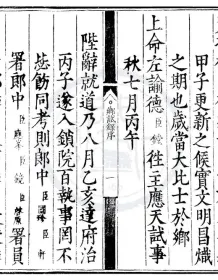 甲子更新之候實文明昌熾
之期也歲當大比士於鄉
上命左諭德臣 往主應天試事
秋七月丙午
試錄序
陛辭就道乃八月乙亥達府治
丙子遂入鎖院百執事罔不
恭飭同考則郎中臣 臣
署郎中臣 臣 臣 署員